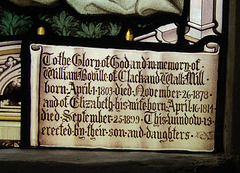 To the Glory of God and in memory of
William Boville of Clack and Walk Mill
born April·1·1803 died November·26·1878·
and of Elizabeth his wife born April·16·1814
died September·25·1899· This window is
erected by their son and daughters·